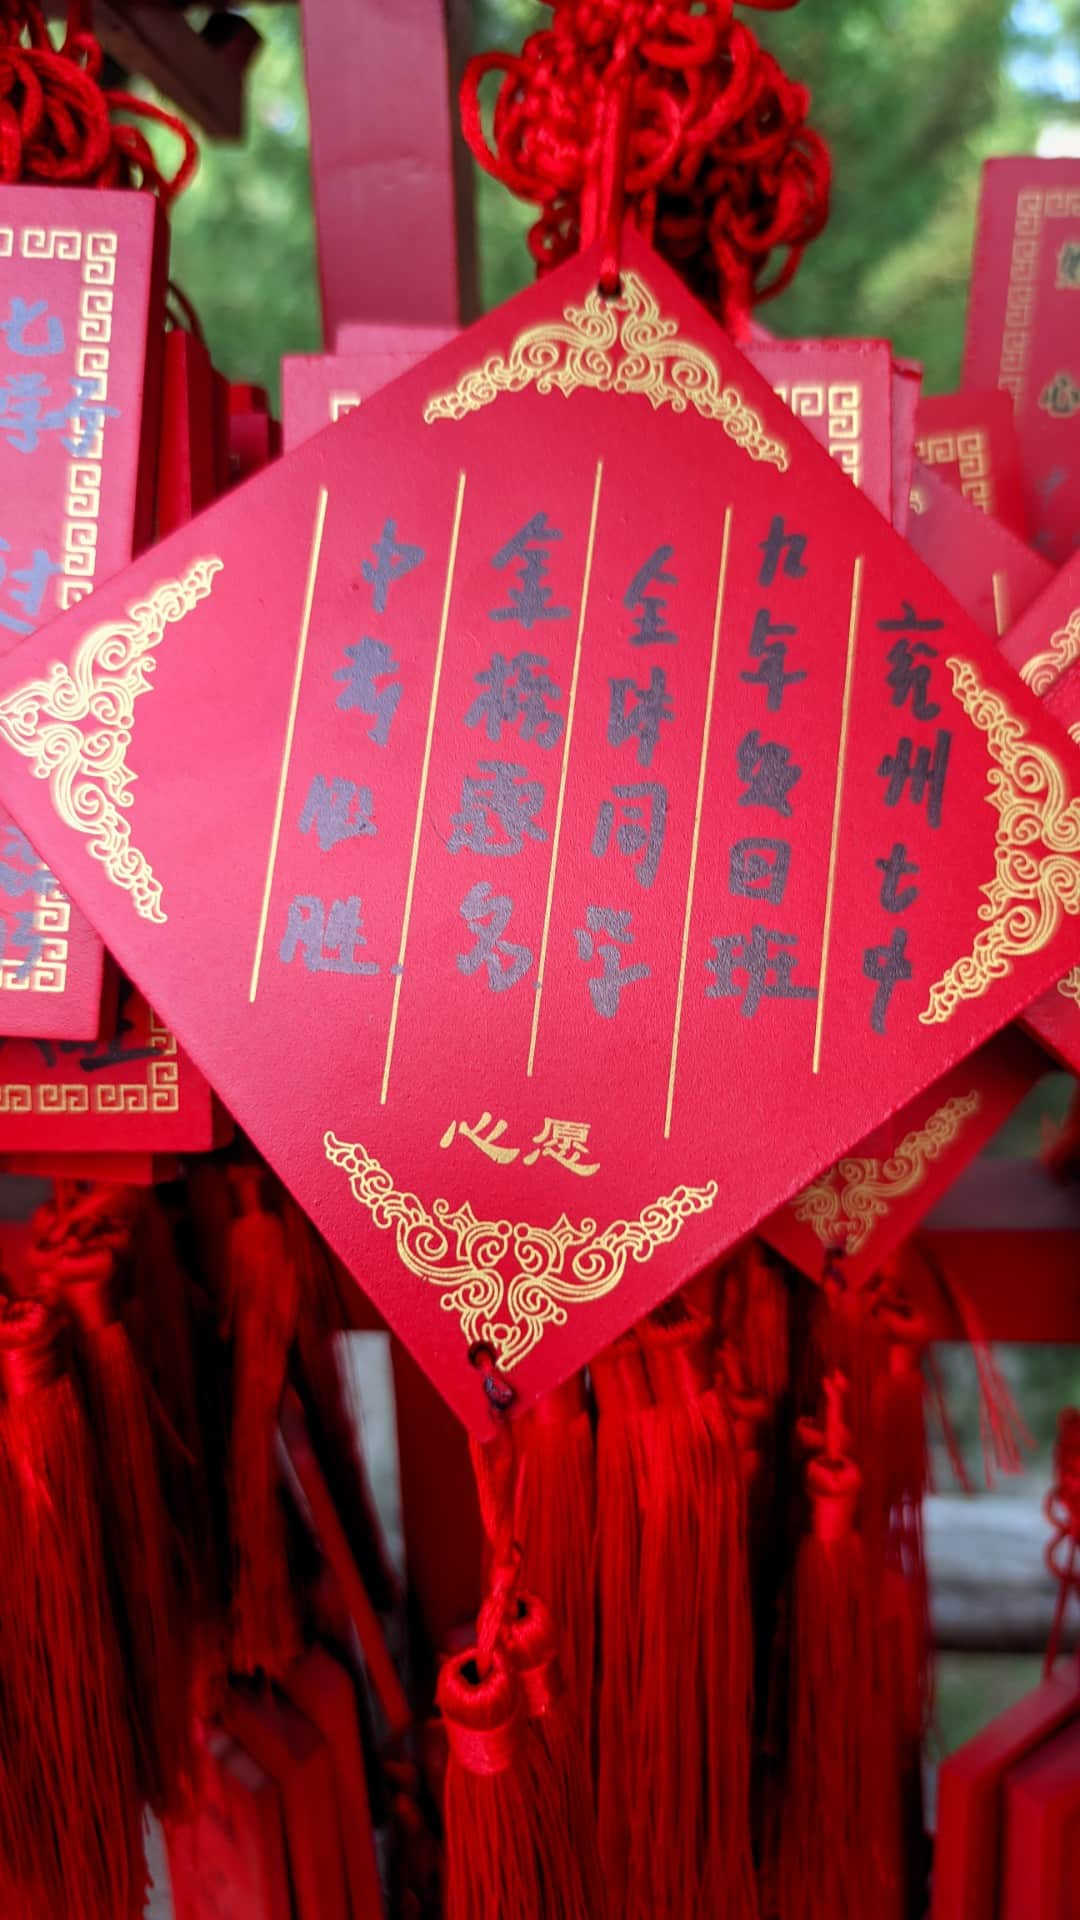 兖州七中
九年级四班
全体同学
金榜题名
中考必胜
心愿